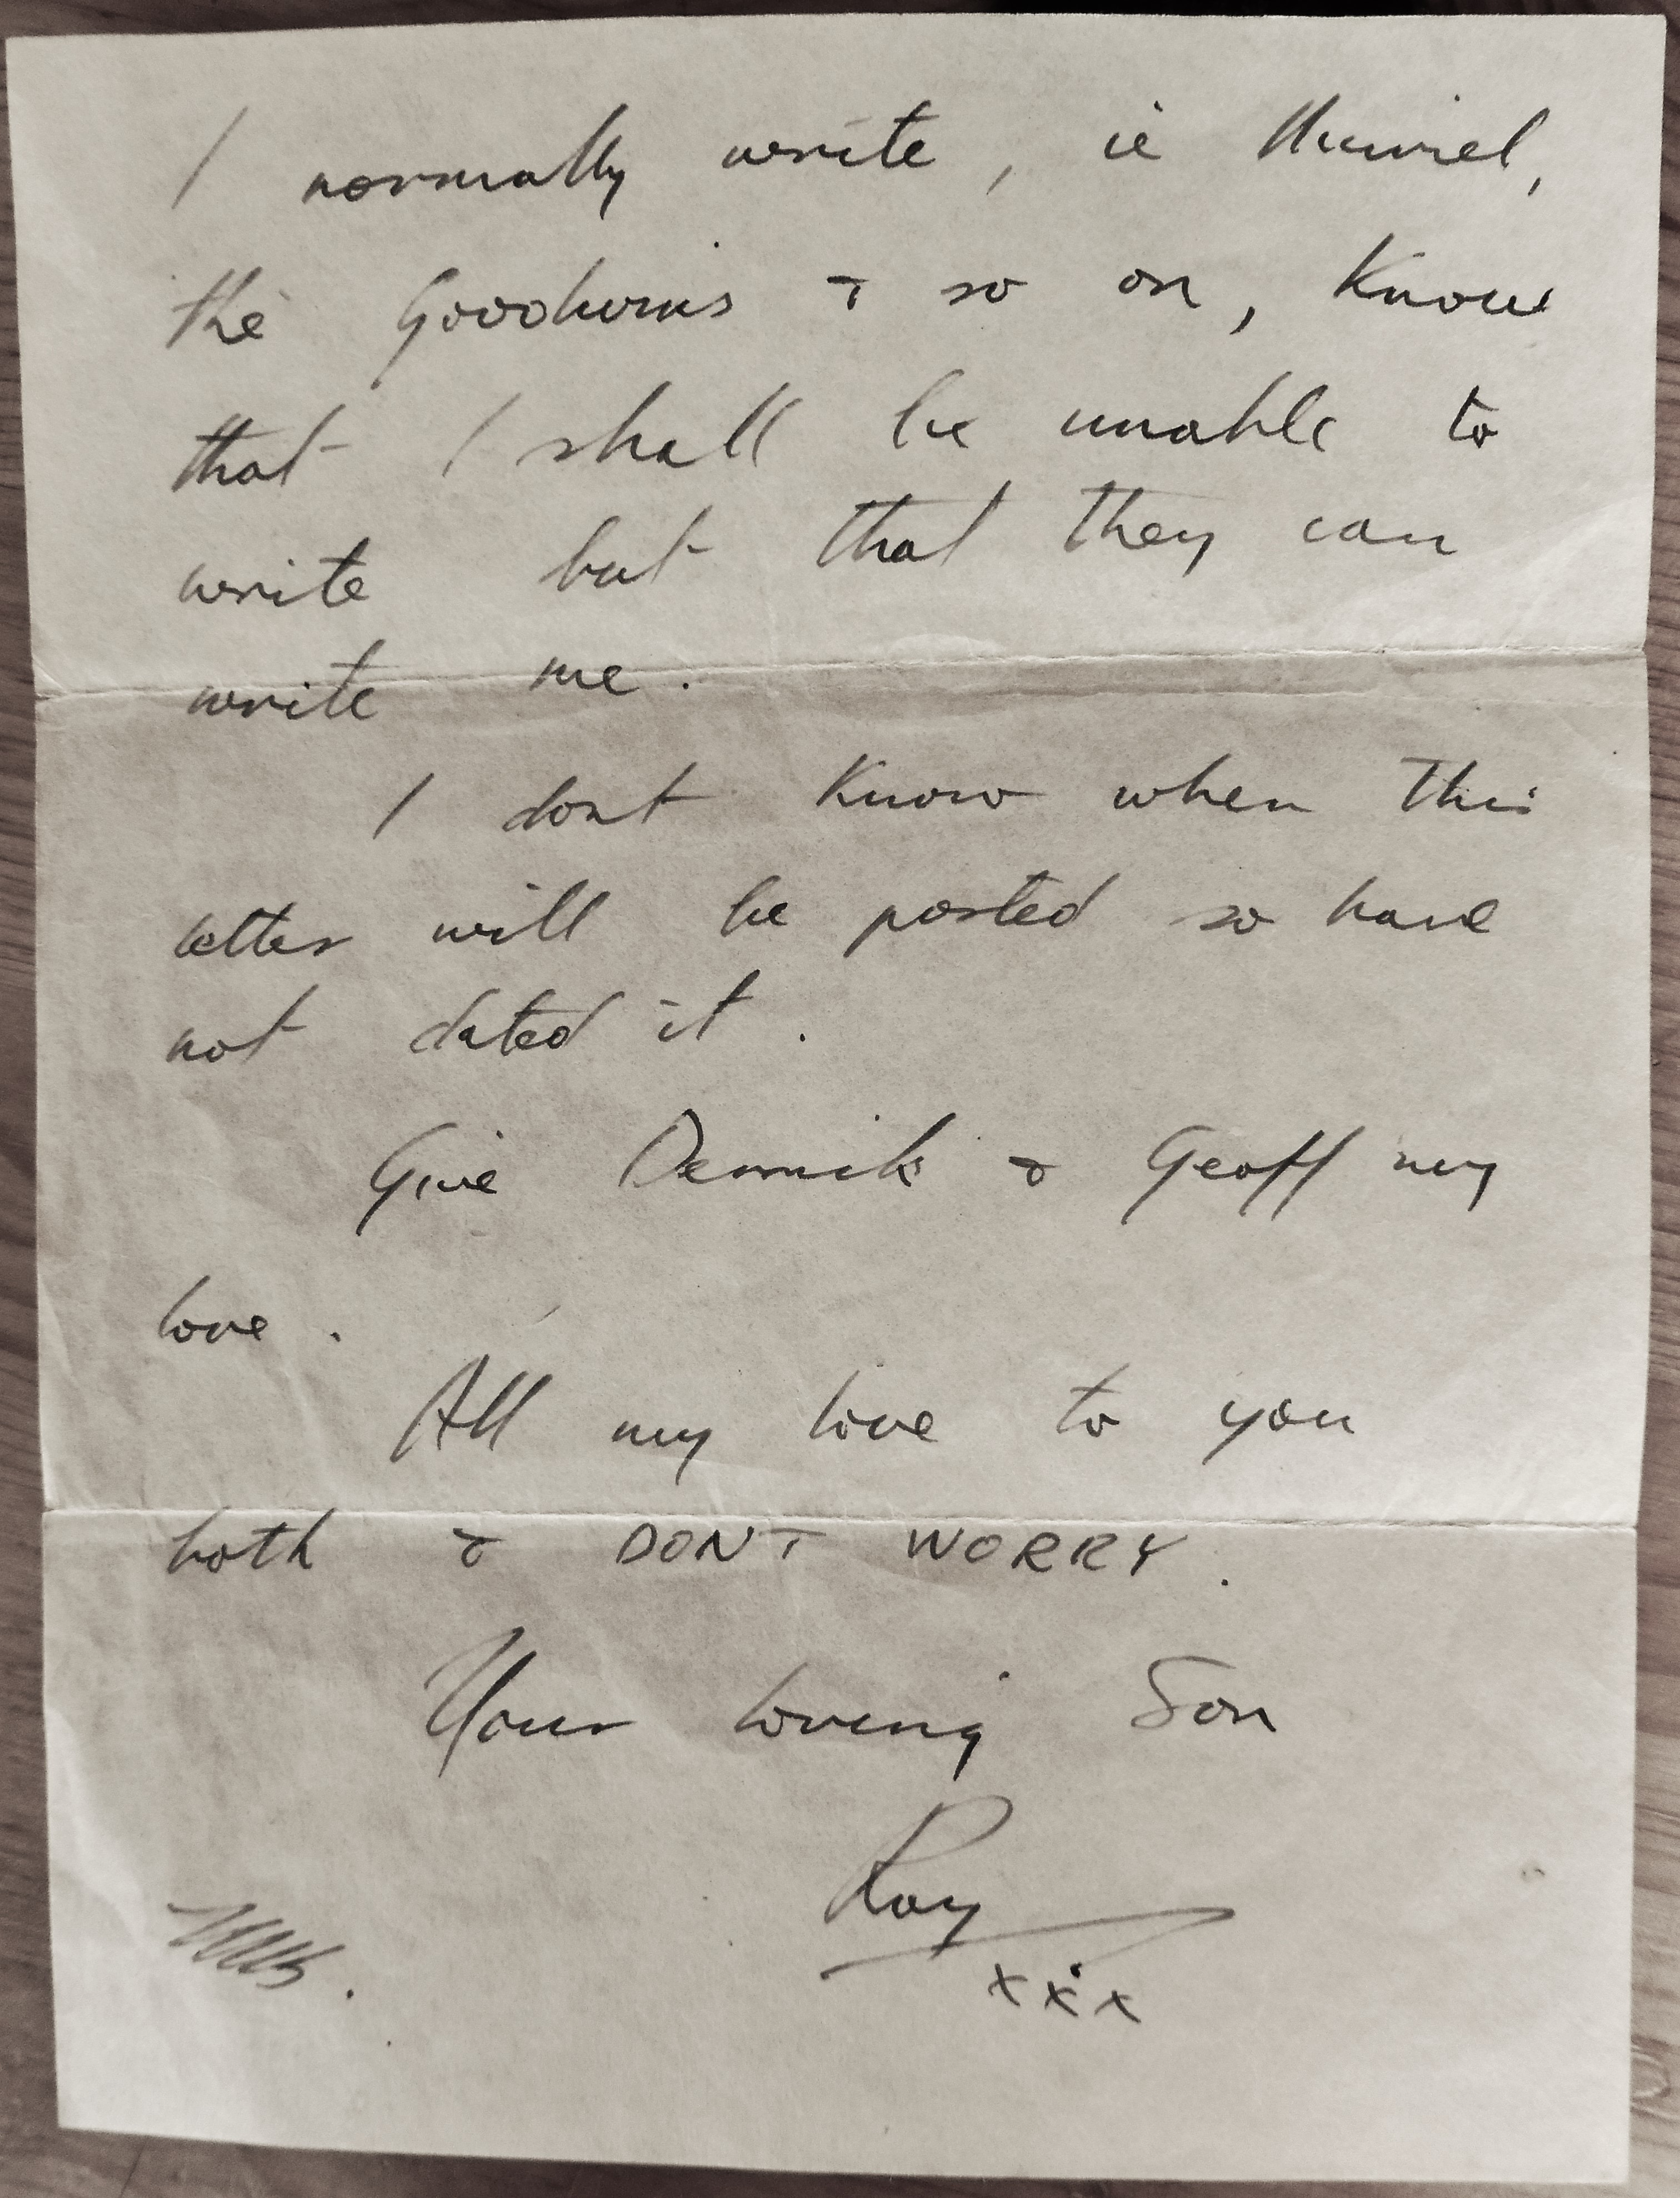 I normally write, ie Muriel,
the Goodwins & so on, know
that I shall be unable to
write but that they can
write me.
I dont know when this
letter will be posted so have
not dated it.
Give Derrick & Geoff my
love.
All my love to you
both & DONT WORRY.
Your loving Son
Ray
xxx